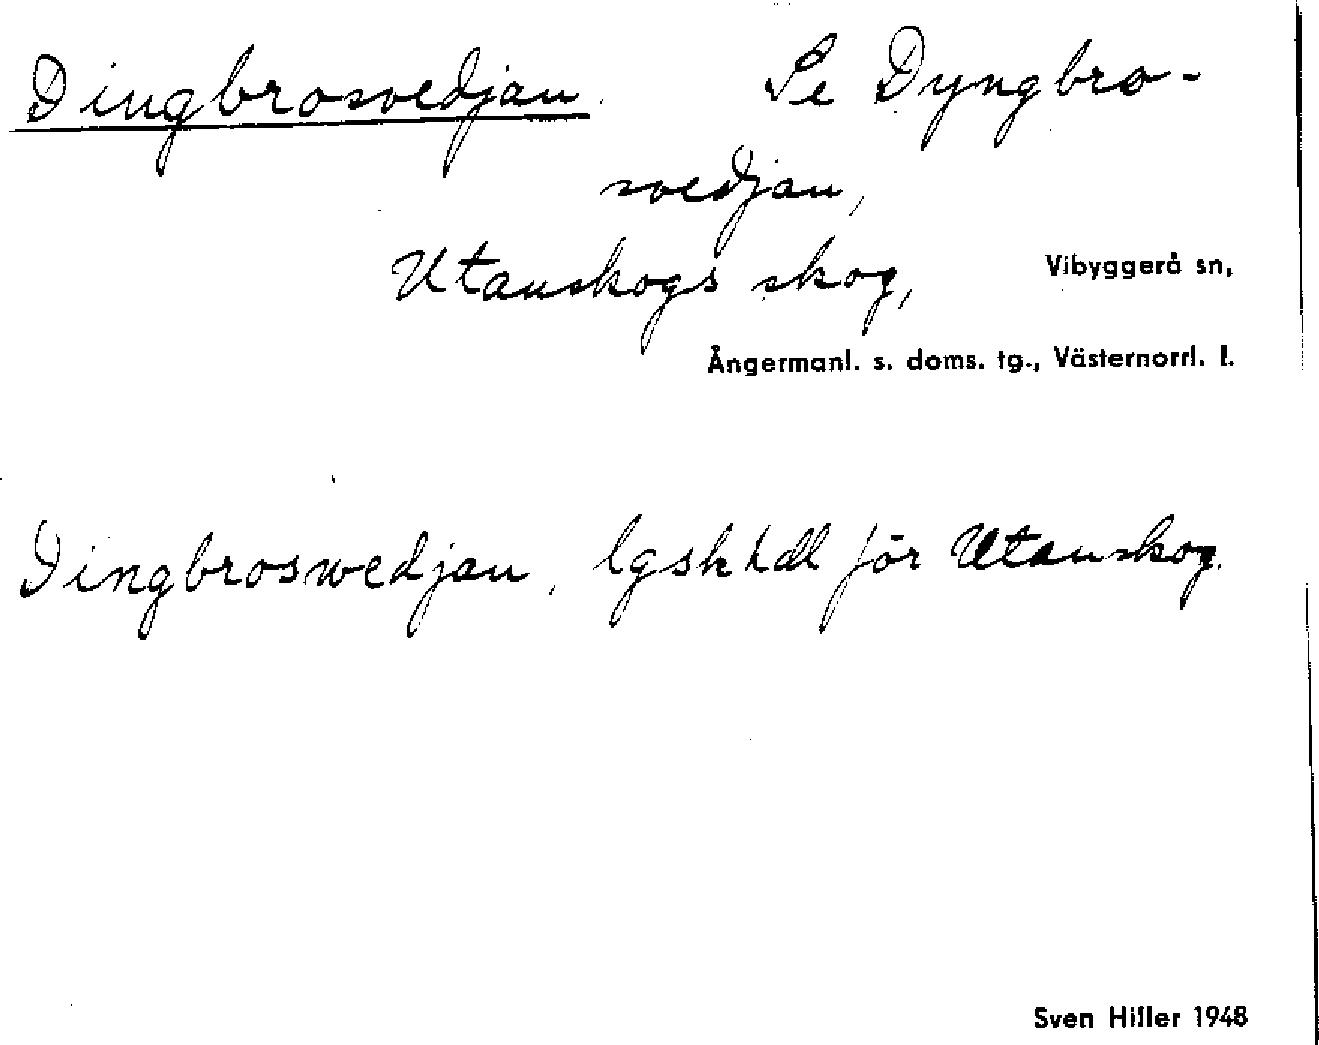 Dingbrosvedjan. Se Dyngbro-
svedjan,
Utanskogs skog, Vibyggerå sn,
Ångermanl. s. doms. tg., Västernorrl. l.
Dingbroswedjan, lgsk för Utanskog.
Sven Hiller 1948